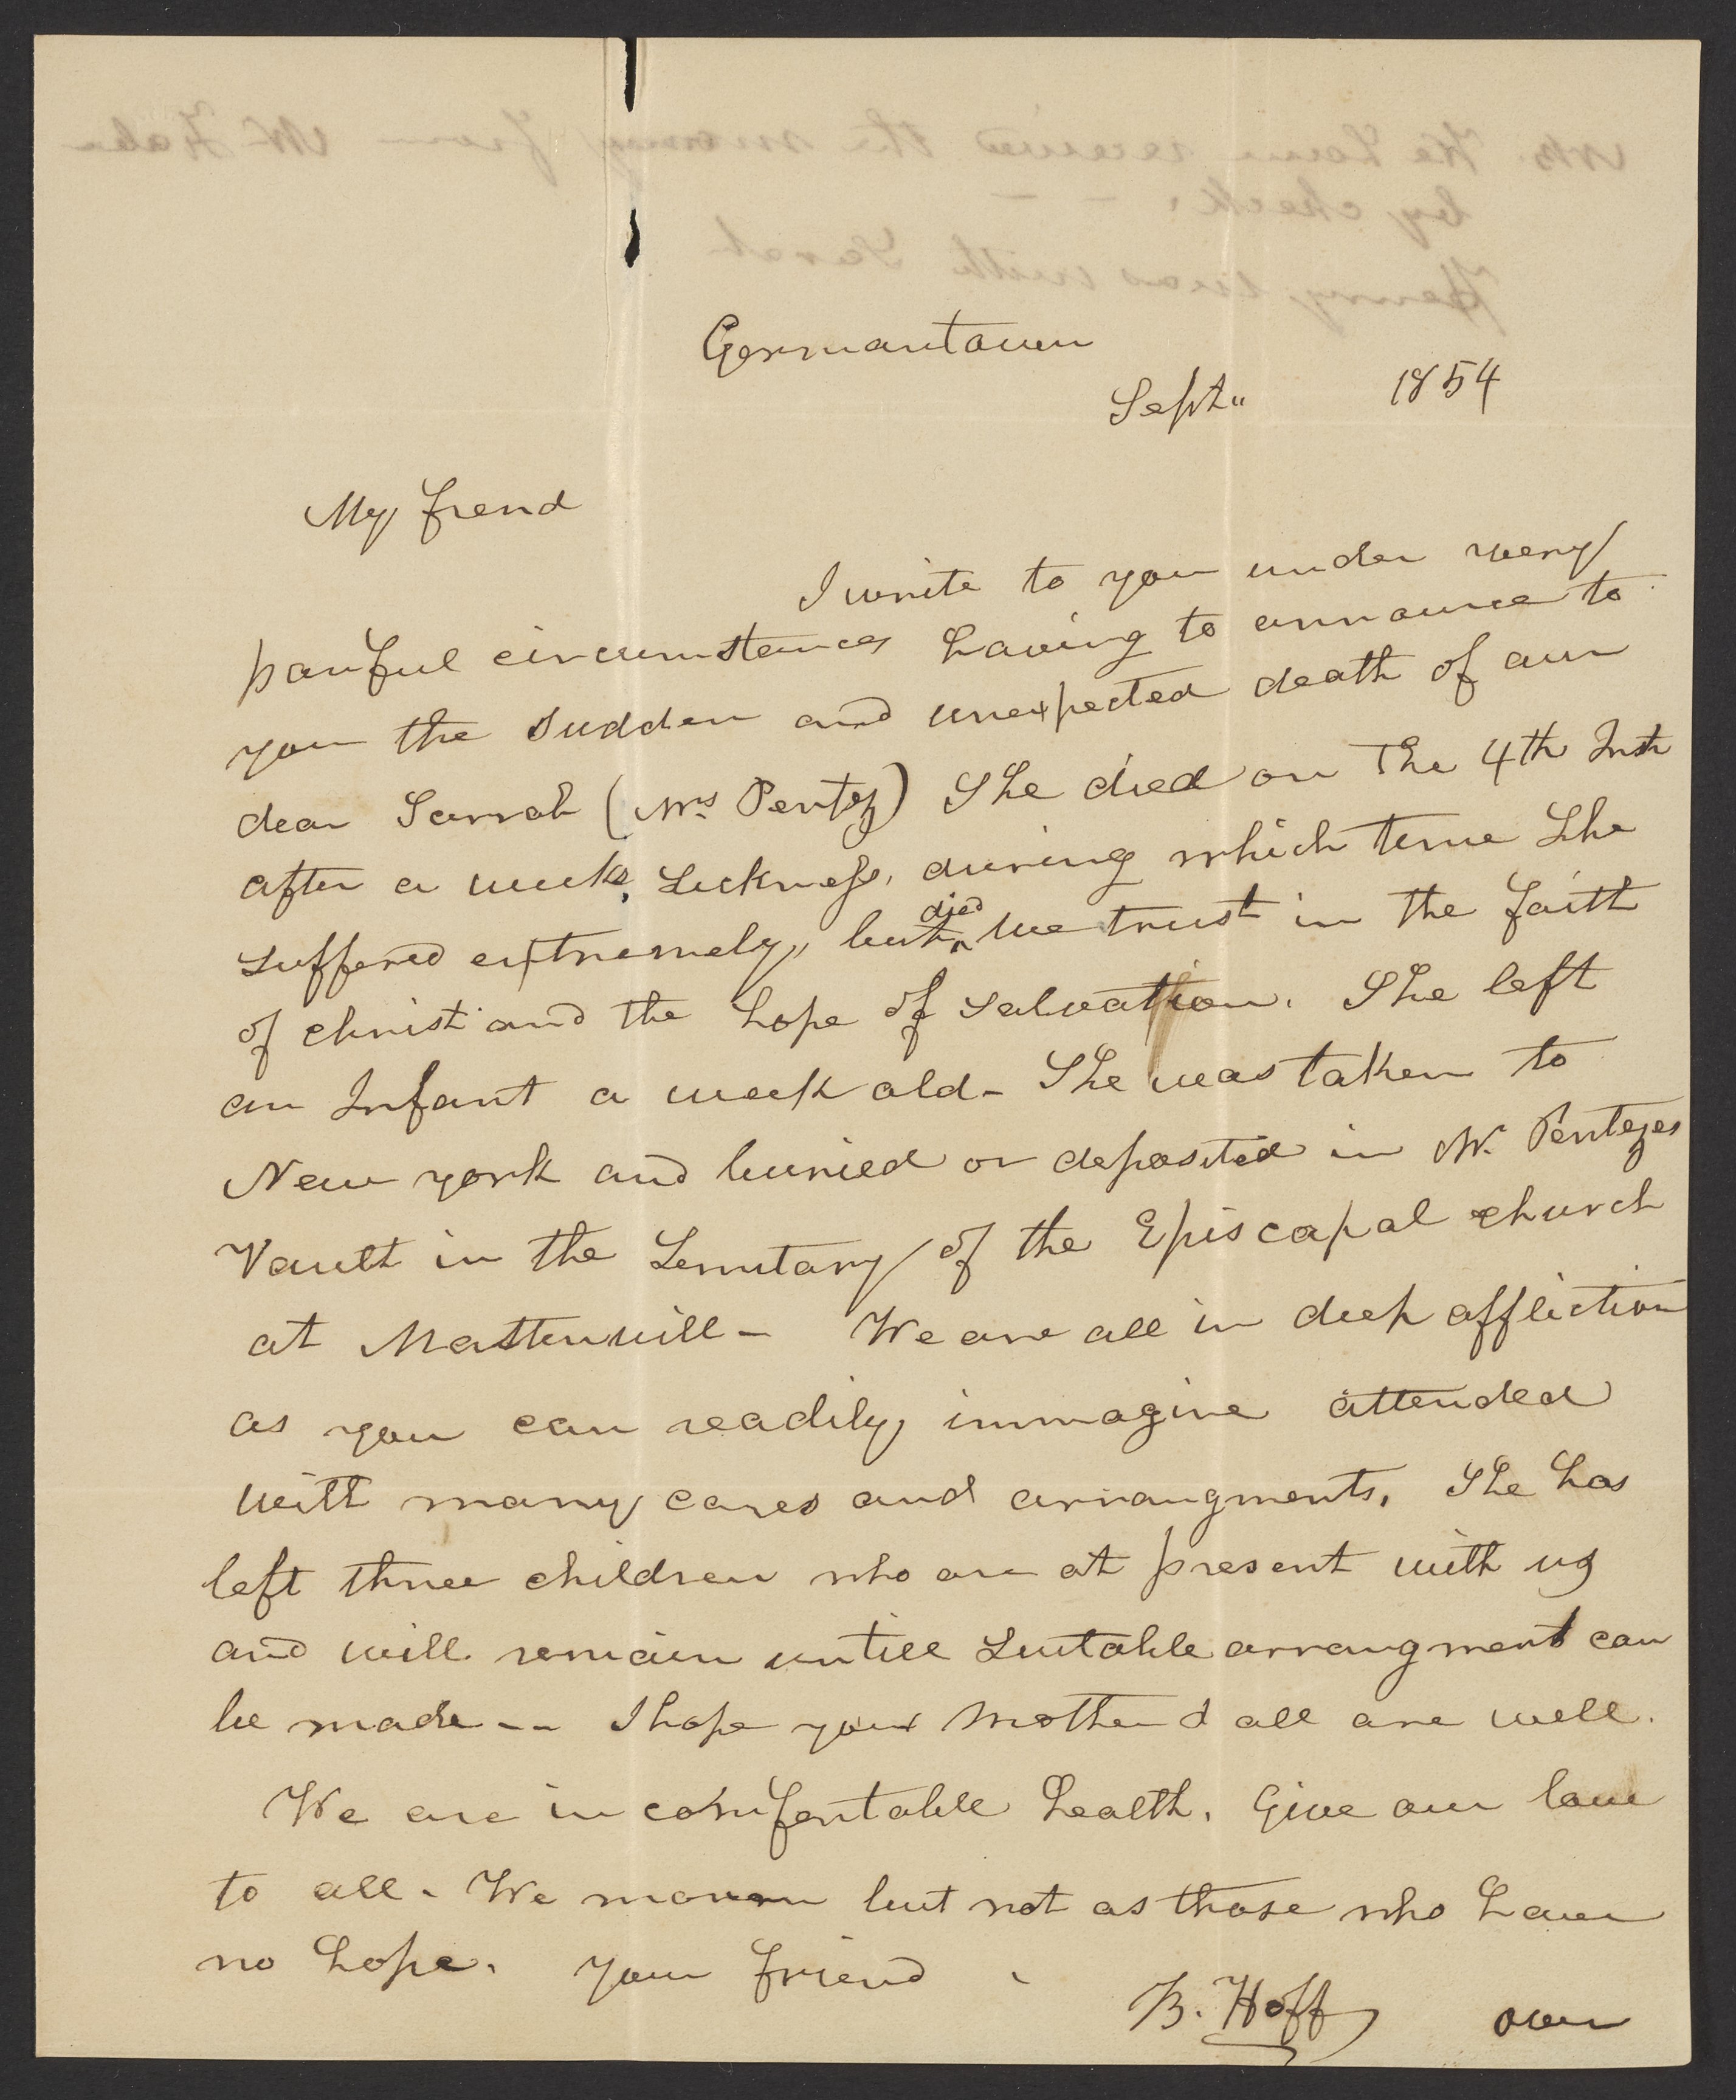 Germantown
Sept. 1854
My frend
I write to you under very
panful circumstances having to announce to
you the sudden and unexpected death of our
dear Sarrah (Mrs Pentz) She died on the 4th Inst
after a weeks sickness, during which time she
suffered extremely, but died we trust in the faith
of christ and the hope of salvation. She left
an Infant a week old - She was taken to
New york and buried or deposited in Mr. Pentzes
Vault in the Semitary of the Episcopal church
at - We are all in deep affliction
as you can readily immagine attended
with many cares and arrangments, She has
left three children who are at present with us
and will remain untill sutable arrangment can
be made -- I hope your Mother & all are well.
We are in comfortable health. Give our love
to all - We mourn but not as those who have
no hope. your friend
B. Hoff over
NB. We have received the money from Mr
by check. - -
Henry was with Sarah